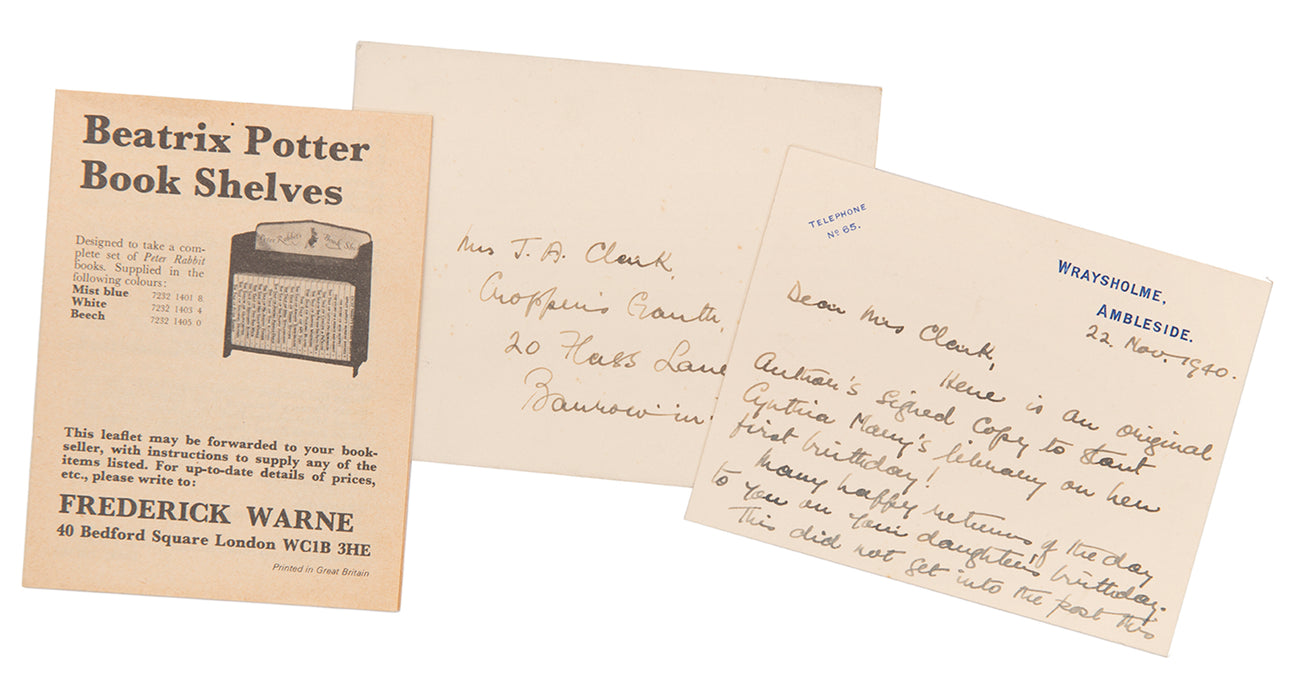 Beatrix Potter
Book Shelves
Peter Rabbit's Book Sh
Designed to take a com-
plete set of Peter Rabbit
books. Supplied in the
following colours:
Mist blue 7232 1401 8
White 7232 1403 4
Beech 7232 1405 0
This leaflet may be forwarded to your book-
seller, with instructions to supply any of the
items listed. For up-to-date details of prices,
etc., please write to:
FREDERICK WARNE
40 Bedford Square London WC1B 3HE
Printed in Great Britain
Mrs J. A. Clark,
Cropper's Garth,
20 Flass Lane
Barrow in
TELEPHONE
Nº 65.
WRAYSHOLME,
AMBLESIDE.
22. Nov. 1940.
Dear Mrs Clark,
Here is an original
Author's signed copy to start
Cynthia Mary's library on her
first birthday!
Many happy returns of the day
to you on your daughter's birthday.
This did not get into the post this